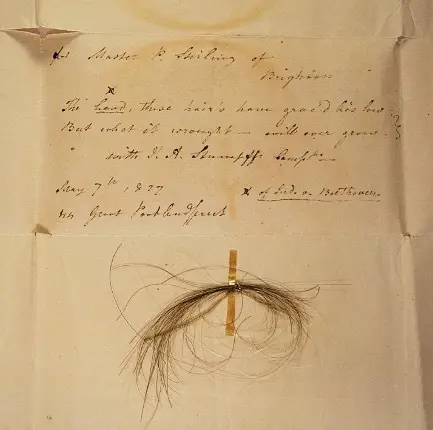 for Master P. Stirling of
Brighton
x
The head, these hair's have grac'd lies low
But what it wrought – will ever grow.
with J. A. Stumpff's Compts –
May 7th 1827
x of Ludv. v. Beethoven.
44 Great Portland Street